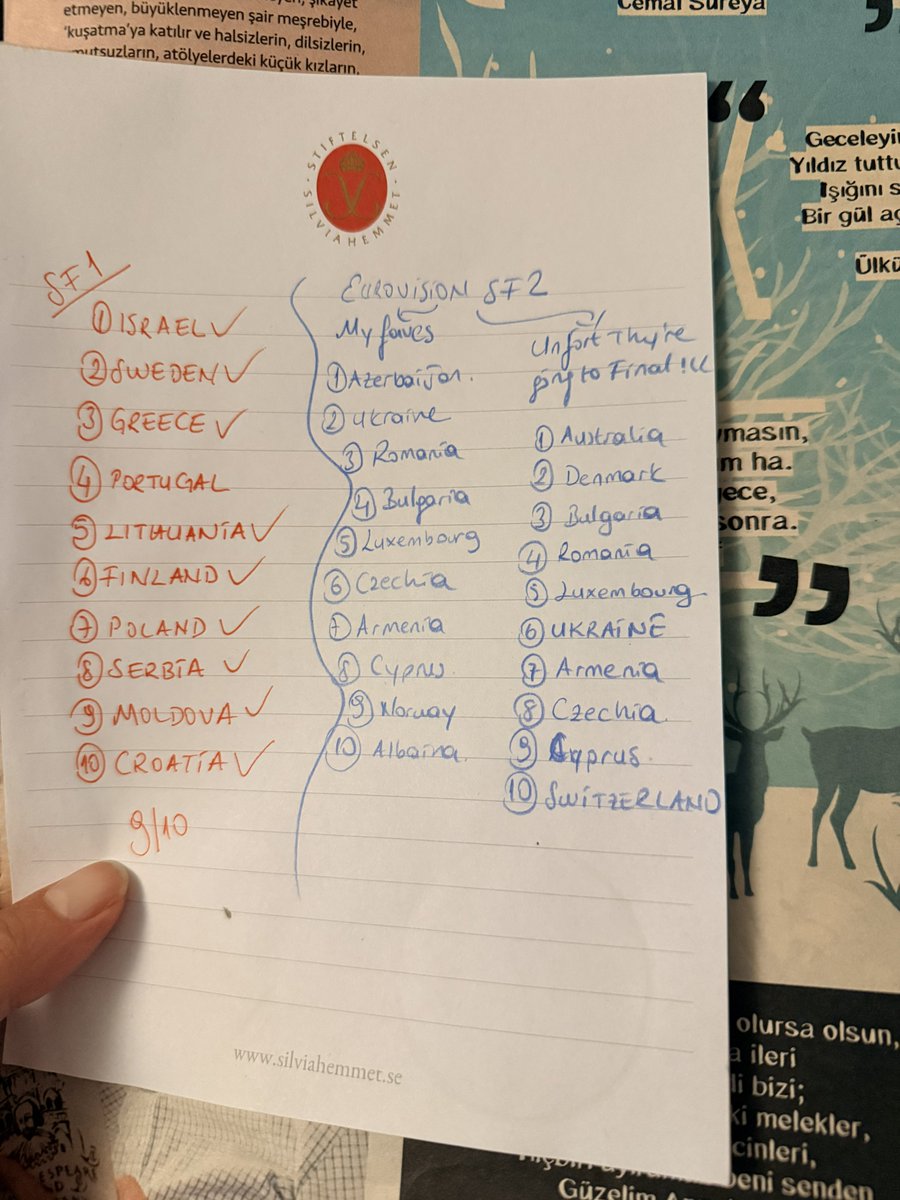 etmeyen, büyüklenmeyen şair meşrebiyle,
‘kuşatma’ya katılır ve halsizlerin, dilsizlerin,
mutsuzların, atölyelerdeki küçük kızların,
Cemal Süreya
“
Geceleyin
Yıldız tuttu
Işığını s
Bir gül aç
Ülkü
STIFTELSEN
SILVIAHEMMET
SF1
① ISRAEL ✓
② SWEDEN ✓
③ GREECE ✓
④ PORTUGAL
⑤ LITHUANIA ✓
⑥ FINLAND ✓
⑦ POLAND ✓
⑧ SERBIA ✓
⑨ MOLDOVA ✓
⑩ CROATIA ✓
9/10
EUROVISION SF2
My faives
① Azerbaijan.
② Ukraine
③ Romania
④ Bulgaria
⑤ Luxembourg
⑥ Czechia
⑦ Armenia
⑧ Cyprus
⑨ Norway
⑩ Albaina.
Unfort They're
going to Final!!!
① Australia
② Denmark
③ Bulgaria
④ Romania
⑤ Luxembourg
⑥ UKRAINE
⑦ Armenia
⑧ Czechia
⑨ Cyprus.
⑩ SWITZERLAND
www.silviahemmet.se
ymasın,
m ha.
ece,
sonra.
”
olursa olsun,
a ileri
li bizi;
ki melekler,
cinleri,
beni senden
Güzelim